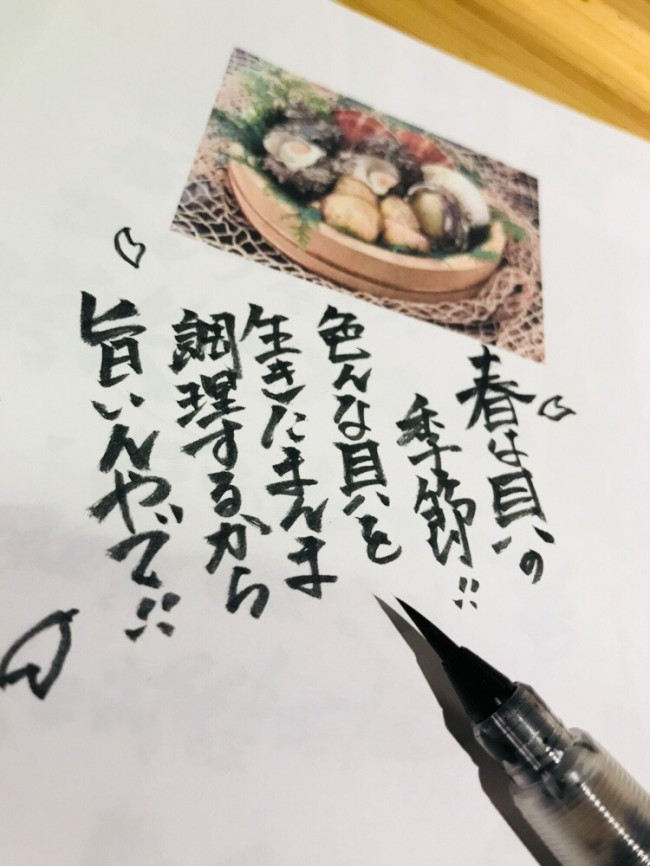 春は貝の
季節!!
色んな貝を
生きたまんま
調理するから
旨いんやで!!